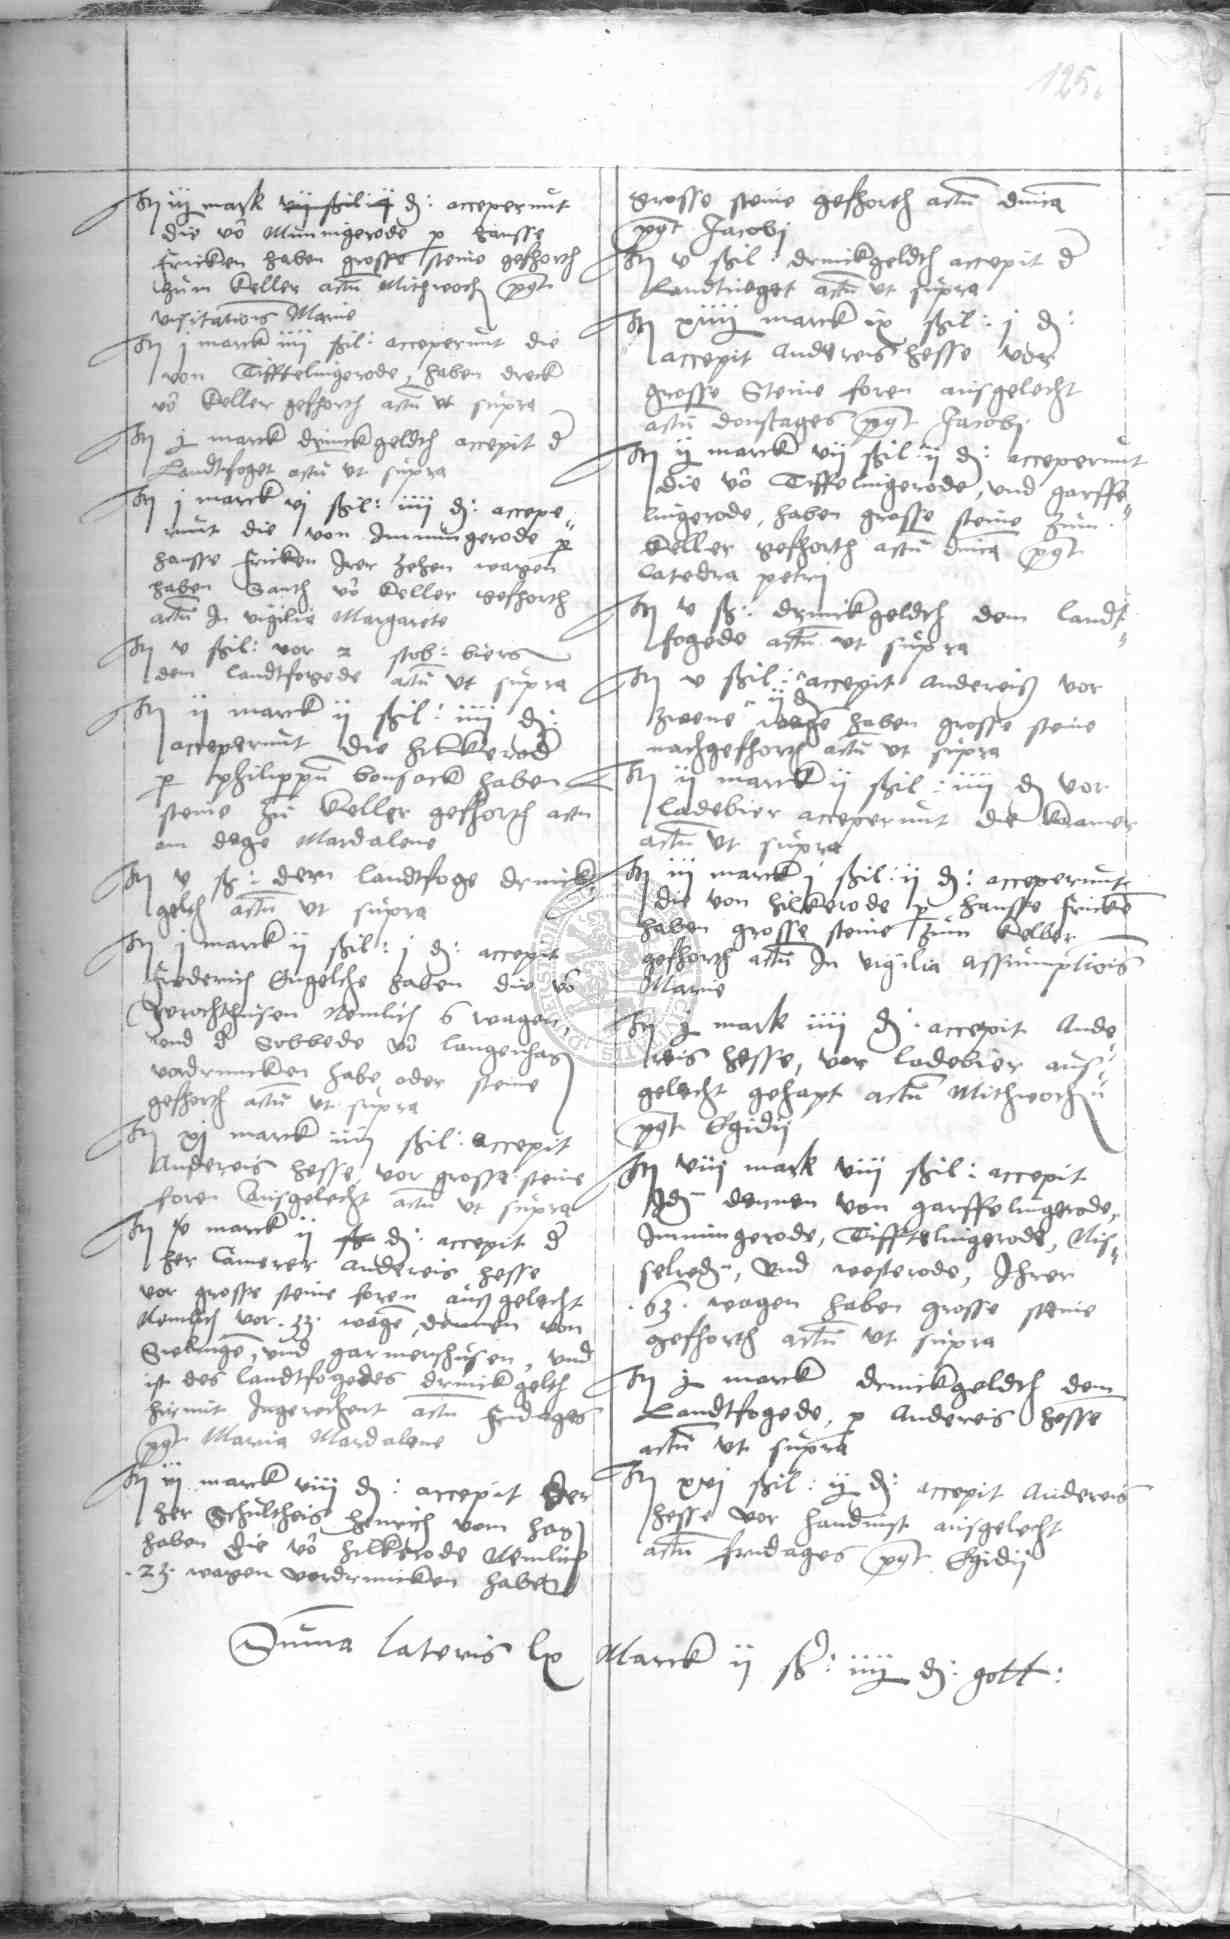 125.
It iij mark d: acceperunt
die vô Immingerode p hansse
Fricken haben grosse steine gefhorth
zum Keller actū Mithwoch pꝰt
visitationis Marie
It j marck iiij ßil: acceperunt die
von Tifftelingerode, haben dreck
vō Keller gefhorth actū ut supra
It j marck drinckgeldth accepit d
Landtfoget actū ut supra
It j marck vj ßil: iiij d: accepe„
runt die von Immingerode p
hansse Fricken Irer zehen wagen
haben Santh vō Keller gefhorth
actū In vigilia Margarete
It v ßil: vor 2 stob: biers
dem landtfogede actū ut supra
It ij marck ij ßil: iiij d:
acceperunt die hilkerod
p philippū bonsack haben
steine zu Keller gefhorth actū
am dage Mardalene
It v ß: dem landtfoge drinck
gelth actū ut supra
It j marck ij ßil: j d: accepit
Friederich Engelche haben die vō
Berothhusen Nemlich 6 wagen,
und d vō langenhag
vordruncken habe, oder steine
gefhorth actū ut supra
It xj marck iiij ßil: accepit
Andereis hesse vor grosse steine
foren ausgelecht actū ut supra
It marck ij d: accepit d
her Camerer Andereis hesse
vor grosse steine foren ausgelecht
Nemlich vor .33. wagē, dennen von
Sielingē, und garmershusen, und
ist des landtfogedes drinckgelth
hirmit Ingerechent actū Fridages
pꝰt Maria Mardalene
It iij marck viij d: accepit der
her Schultheis henrich vom hag
haben die vō hilkerode Nemlich
.23. wagen vordruncken haben
grosse steine gefhorth actū dnica
pꝰt Jacobj
It v ßil: drinckgeldth accepit d
Landtuoget actū ut supra
It xiiij marck ix ßil: j d:
accepit Andereis hesse vor
grosse Steine foren ausgelecht
actū donstages pꝰt Jacobj
It ij marck vij ßil: ij d: acceperunt
die vō Tiffelingerode, und garffe„
lingerode, haben grosse steine zum
Keller gefhorth actū dnica pꝰt
Catedra petrj
It v ß: drinckgeldth dem landt„
fogede actū ut supra
It v ßil: ij d accepit Andereis vor
zweene wage haben grosse steine
nachgefhorth actū ut supra
It ij marck ij ßil: iiij d vor
ladebier acceperunt die Kramer
actū ut supra
It iij marck j ßil: ij d: acceperunt
die von hilkerode p hansse Frickē
haben grosse steine zum Keller
gefhorth actū In vigilia assumptiōis
Marie
It j mark iiij d: accepit Ande
reis hesse, vor ladebier aus„
gelecht gehapt actū Mithwoch
pꝰt Egidij
It viij mark viij ßil: accepit
Idē dennen von garffelingerode,
Immingerode, Tifftelingerode, Nis„
selredē, und westerode, Ihrer
.63. wagen haben grosse steine
gefhorth actū ut supra
It j marck drinckgeldth dem
Landtfogede, p Andereis hesse
actū ut supra
It xvj ßil: ij d: accepit Andereis
hesse vor ausgelecht
actū fridages pꝰt Egidij
Summa lateris lx Marck ij ß: iiij d: gott: